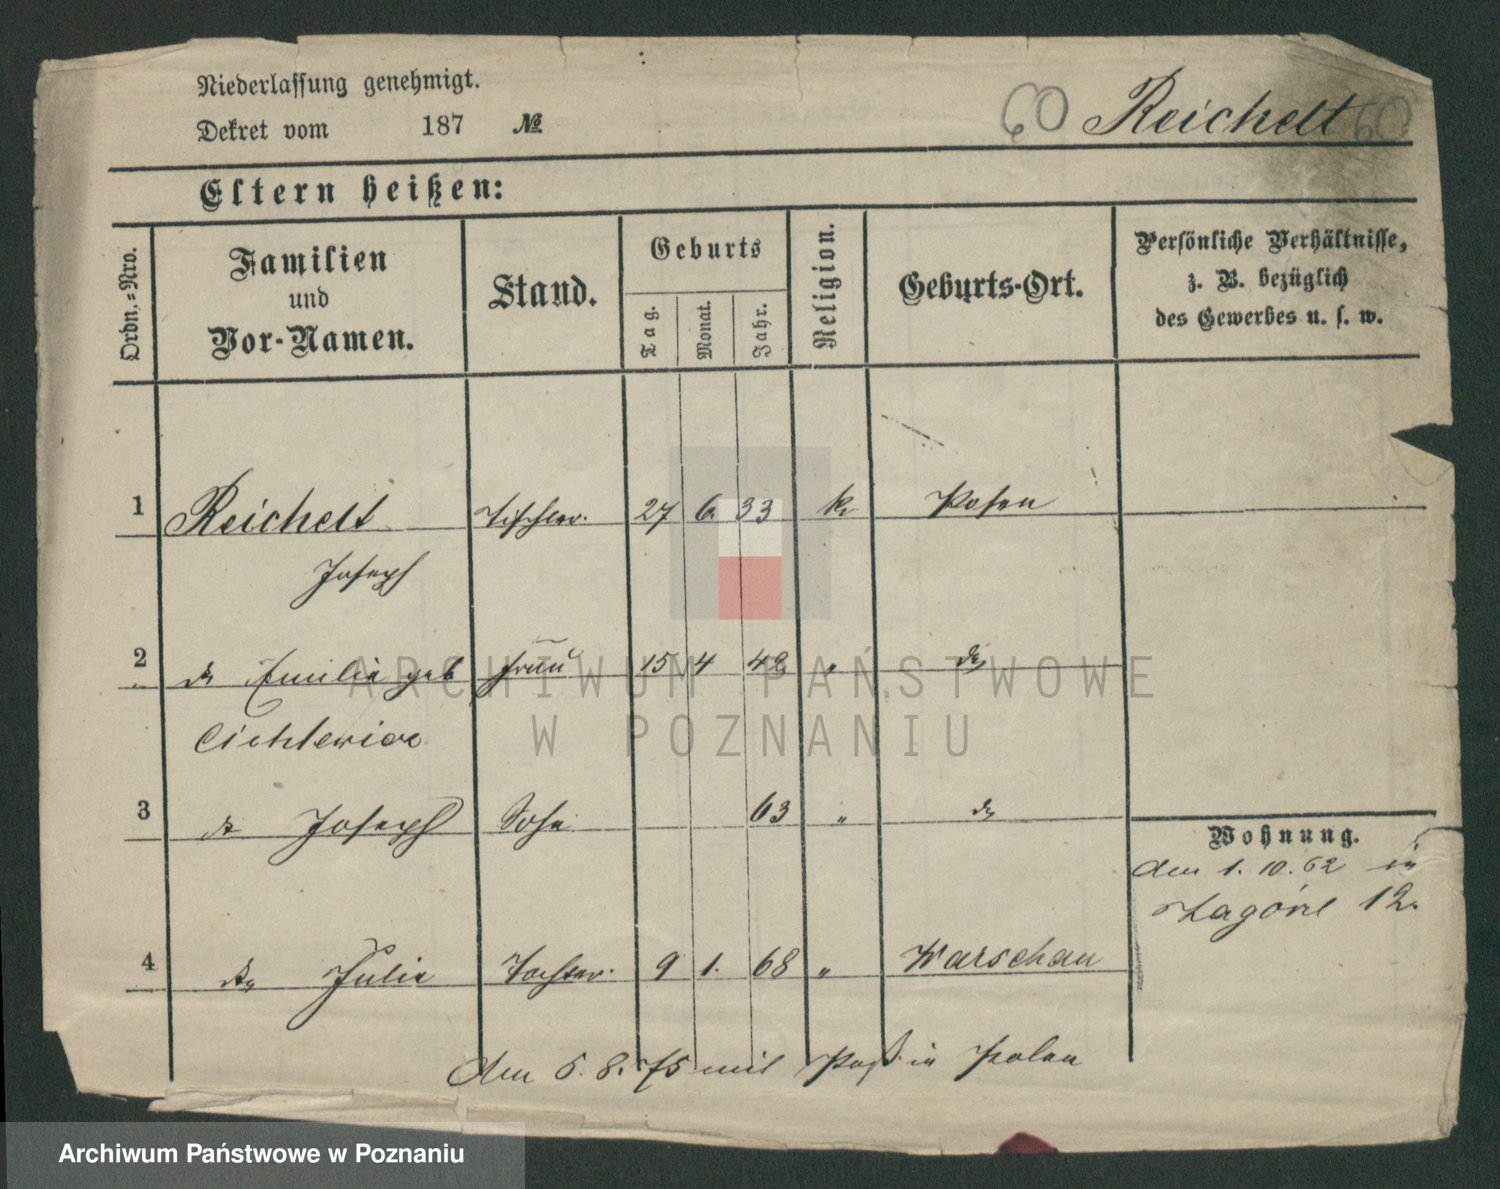 Niederlassung genehmigt.
Dekret vom 187 №
60 Reichelt 60
Eltern heißen:
Ordn.-Nro.
Familien und Vor-Namen.
Stand.
Geburts
Tag.
Monat.
Jahr.
Religion.
Geburts-Ort.
Persönliche Verhältnisse,
z. B. bezüglich
des Gewerbes u. s. w.
1 Reichelt Tischler. 27 6. 33 k. Posen
Joseph
2 do Emilia geb Frau 15 4 42 " do
3 do Joseph Sohn 63 " do
Wohnung.
den 1. 10. 62 in
Zagórze 12.
4 do Julie Tochter. 9 1. 68 " Warschau
den 5. 8. 75 mit Paß in Polen
ARCHIWUM PAŃSTWOWE
W POZNANIU
Archiwum Państwowe w Poznaniu